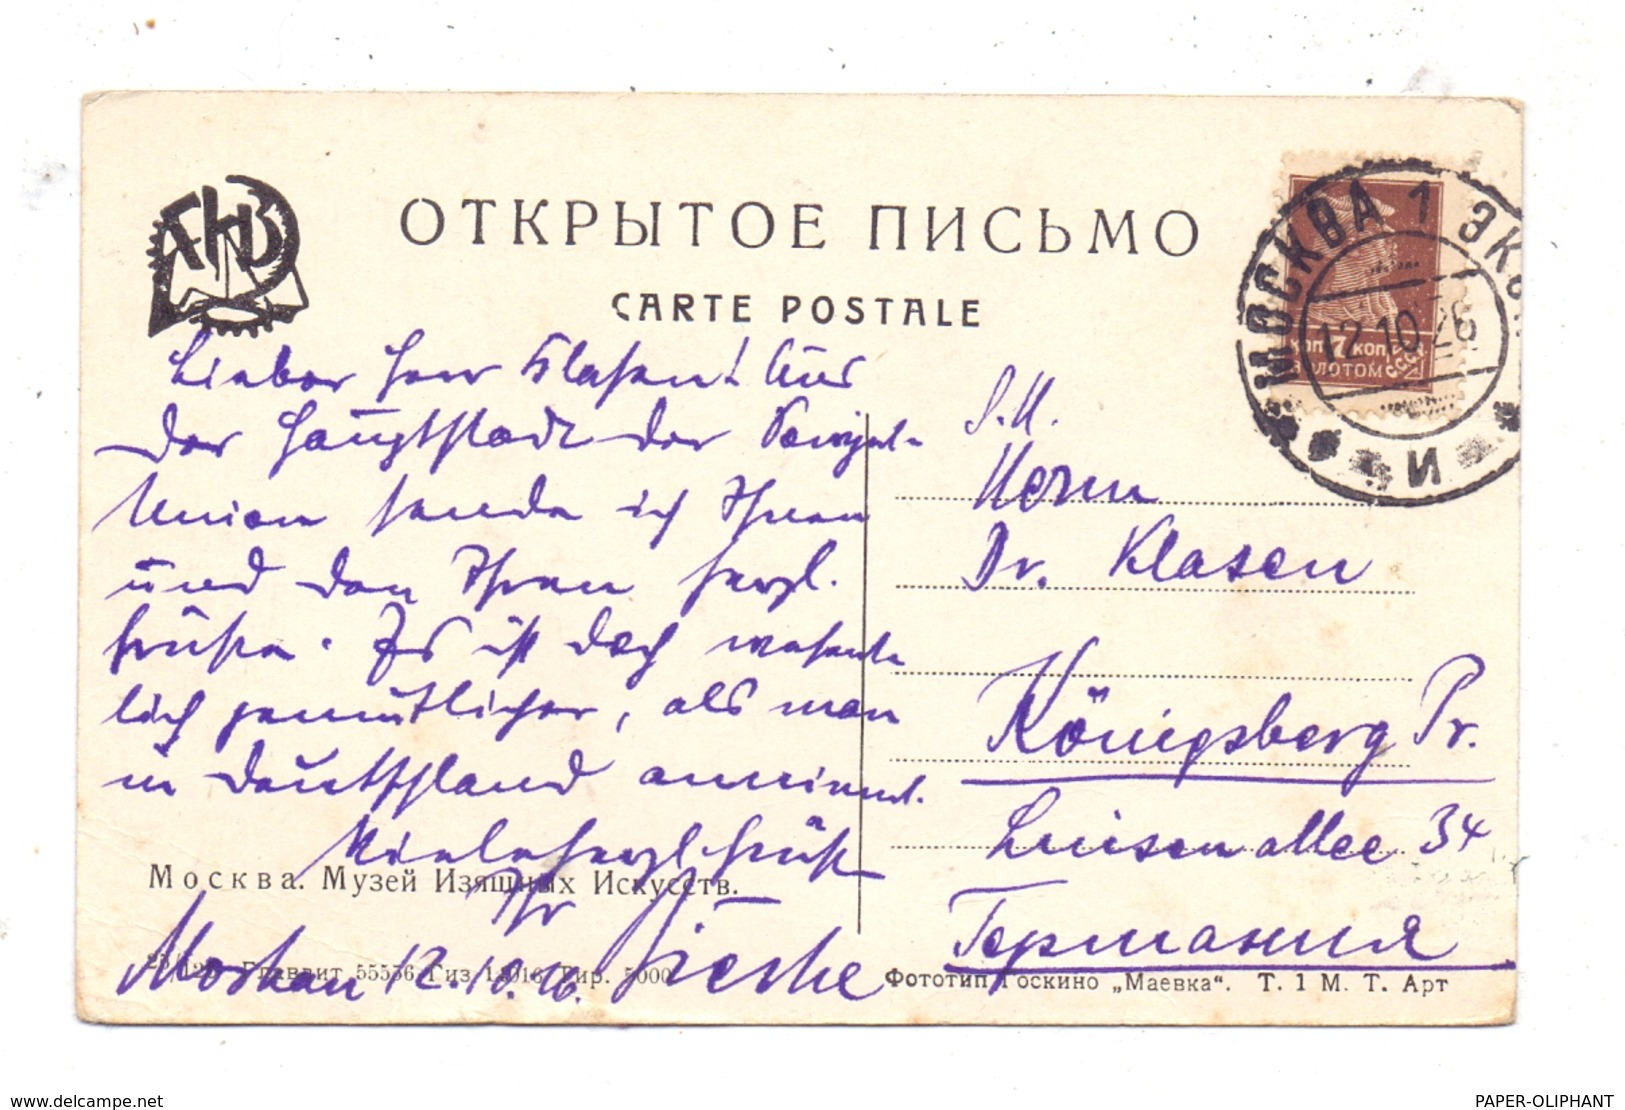 ОТКРЫТОЕ ПИСЬМО
CARTE POSTALE
МОСКВА 1 ЭКС
12.10.26
И
КОП 7 КОП
ЗОЛОТОМ
СССР
Lieber Herr Klasen! Aus
der Hauptstadt der Sowjet-
Union sende ich Ihnen
und den Ihren herzl.
Grüße. Es ist doch wesent-
lich gemütlicher, als man
in Deutschland annimmt.
Viele herzl. Grüße
Ihr
Moskau 12.10.26.
S.H.
Herrn
Dr. Klasen
Königsberg Pr.
Luisenallee 34
Германия
Москва. Музей Изящных Искусств.
Главлит 55556 Гиз Тир. 5000
Фототип Госкино „Маевка“. Т. 1 М. Т. Арт
delcampe.net
PAPER-OLIPHANT